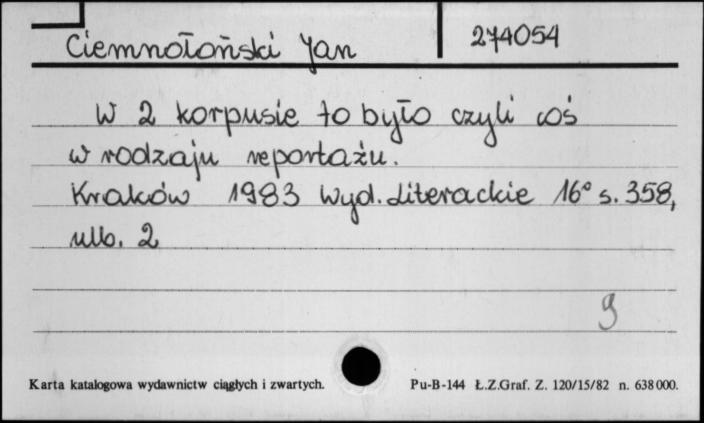 Ciemnołoński Jan 274054
W 2 korpusie to było czyli coś
w rodzaju reportażu.
Kraków 1983 Wyd. Literackie 16° s. 358,
nlb. 2
9
Karta katalogowa wydawnictw ciągłych i zwartych. Pu-B-144 Ł.Z.Graf. Z. 120/15/82 n. 638 000.